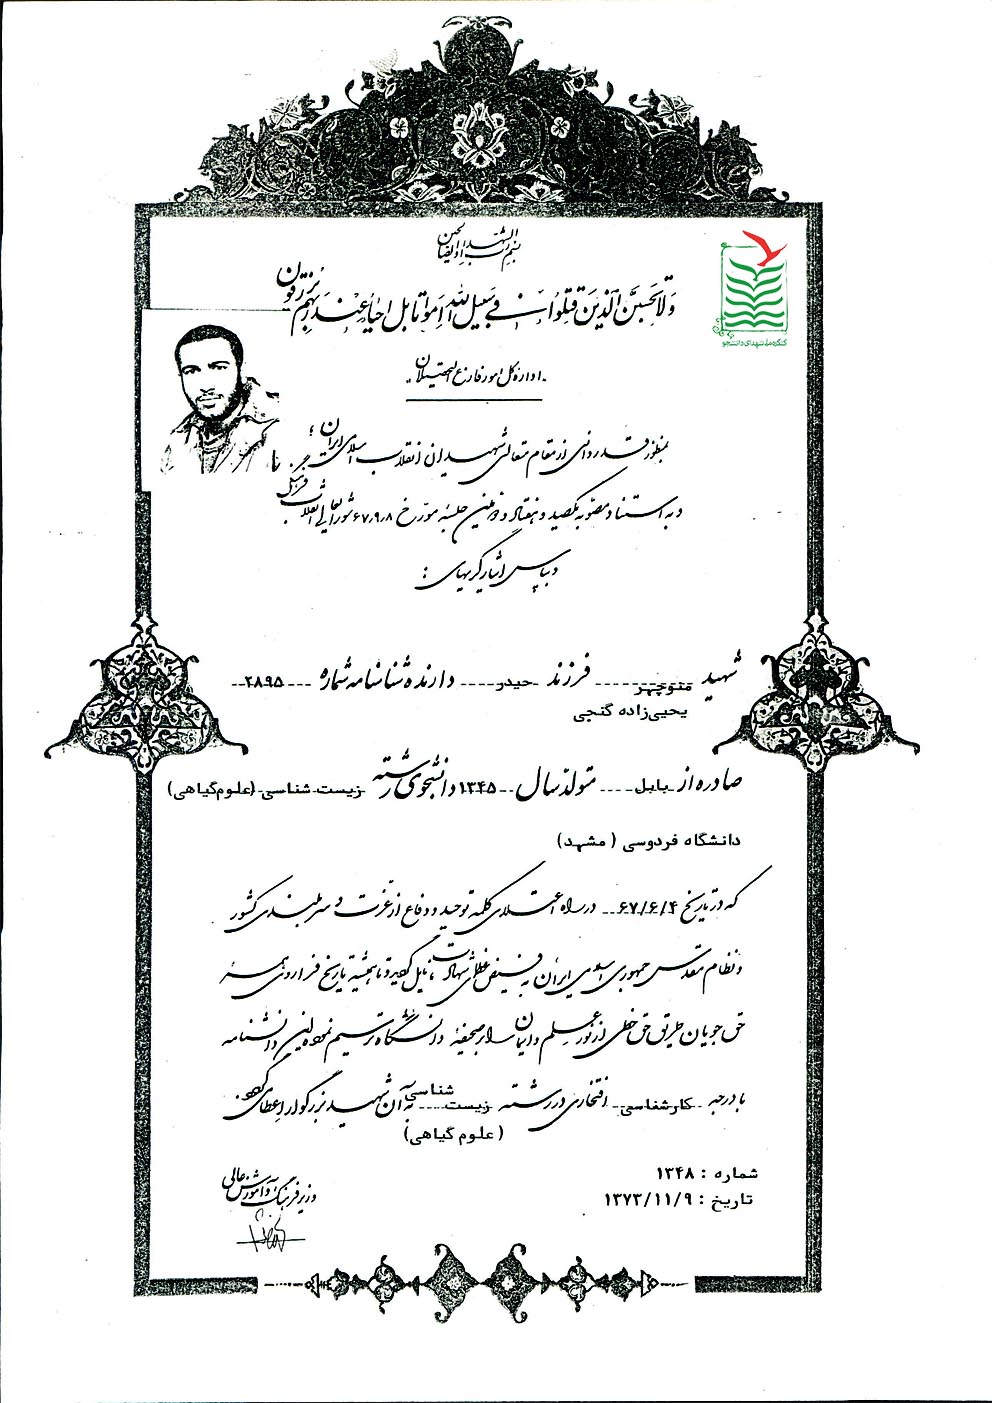 بسم رب الشهداء و الصالحین
وَلا تَحْسَبَنَّ الَّذینَ قُتِلُوا فی سَبیلِ اللهِ اَمْواتا بَلْ اَحْیاءٌ عِنْدَ رَبِّهِمْ یُرْزَقُونَ
کنگره ملی شهدای دانشجو
اداره کل امور فارغ التحصیلان
بمنظور قدردانی از مقام متعالی شهیدان انقلاب اسلامی ایران؛
و به استناد مصوبه یکصد و هفتاد و دومین جلسه مورخ ۶۷/۹/۸ شورایعالی انقلاب فرهنگی
و بپاس ایثارگریهای:
شهید منوچهر فرزند حیدر دارنده شناسنامه شماره ۲۸۹۵
یحیی‌زاده گنجی
صادره از بابل متولد سال ۱۳۴۵ دانشجوی رشته زیست شناسی (علوم گیاهی)
دانشگاه فردوسی (مشهد)
که در تاریخ ۶۷/۶/۴ در راه اعتلای کلمه توحید و دفاع از عزت و سربلندی کشور
و نظام مقدس جمهوری اسلامی ایران به فیض عظمای شهادت نایل گردید و تا همیشه تاریخ فرا روی همه
حق جویان طریق حق خطی از نور علم و ایمان بر صحیفه دانشگاه ترسیم نموده این دانشنامه
با درجه کارشناسی افتخاری در رشته زیست شناسی به آن شهید بزرگوار اعطا می گردد
(علوم گیاهی)
شماره : ۱۳۴۸
تاریخ : ۱۳۷۳/۱۱/۹
وزیر فرهنگ و آموزش عالی